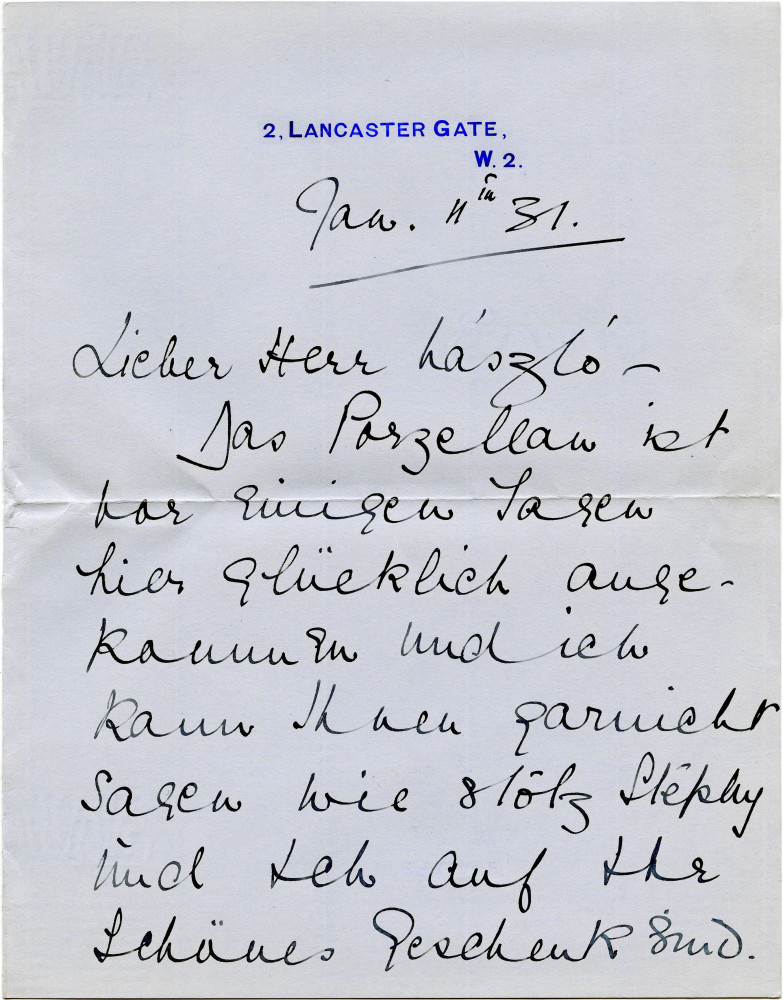 2, LANCASTER GATE,
W. 2.
Jan. 11th 31.
Lieber Herr László –
Das Porzellan ist
vor einigen Tagen
hier glücklich ange-
kommen und ich
kann Ihnen garnicht
sagen wie stolz Stéphy
und ich auf Ihr
schönes Geschenk sind.